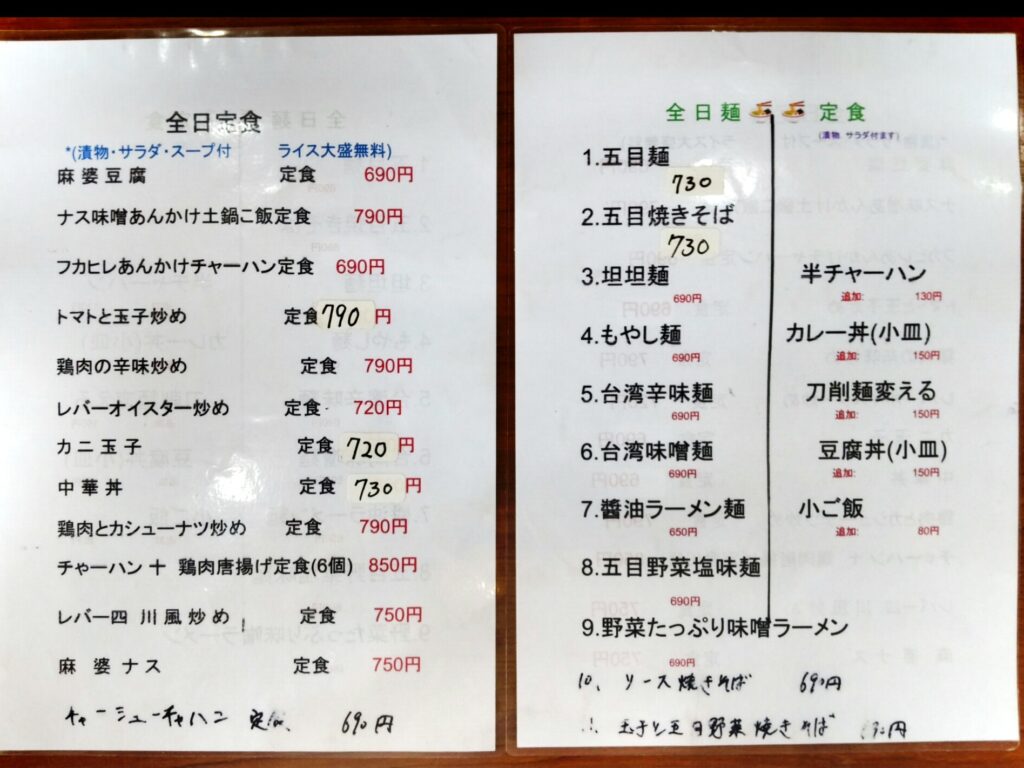 全日定食
*(漬物・サラダ・スープ付 ライス大盛無料)
麻婆豆腐 定食 690円
ナス味噌あんかけ土鍋ご飯定食 790円
フカヒレあんかけチャーハン定食 690円
トマトと玉子炒め 定食 790 円
鶏肉の辛味炒め 定食 790円
レバーオイスター炒め 定食 720円
カニ玉子 定食 720 円
中華丼 定食 730 円
鶏肉とカシューナツ炒め 定食 790円
チャーハン + 鶏肉唐揚げ定食(6個) 850円
レバー四 川風炒め 定食 750円
麻 婆 ナス 定食 750円
チャーシューチャハン 定食 690円
全日麺 定食
(漬物 サラダ付ます)
1.五目麺
730
2.五目焼きそば
730
3.坦坦麺
690円
4.もやし麺
690円
5.台湾辛味麺
690円
6.台湾味噌麺
690円
7.醬油ラーメン麺
650円
8.五目野菜塩味麺
690円
9.野菜たっぷり味噌ラーメン
690円
10、ソース焼きそば 690円
玉子と五目野菜焼きそば
半チャーハン
追加: 130円
カレー丼(小皿)
追加: 150円
刀削麺変える
追加: 150円
豆腐丼(小皿)
追加: 150円
小ご飯
追加: 80円